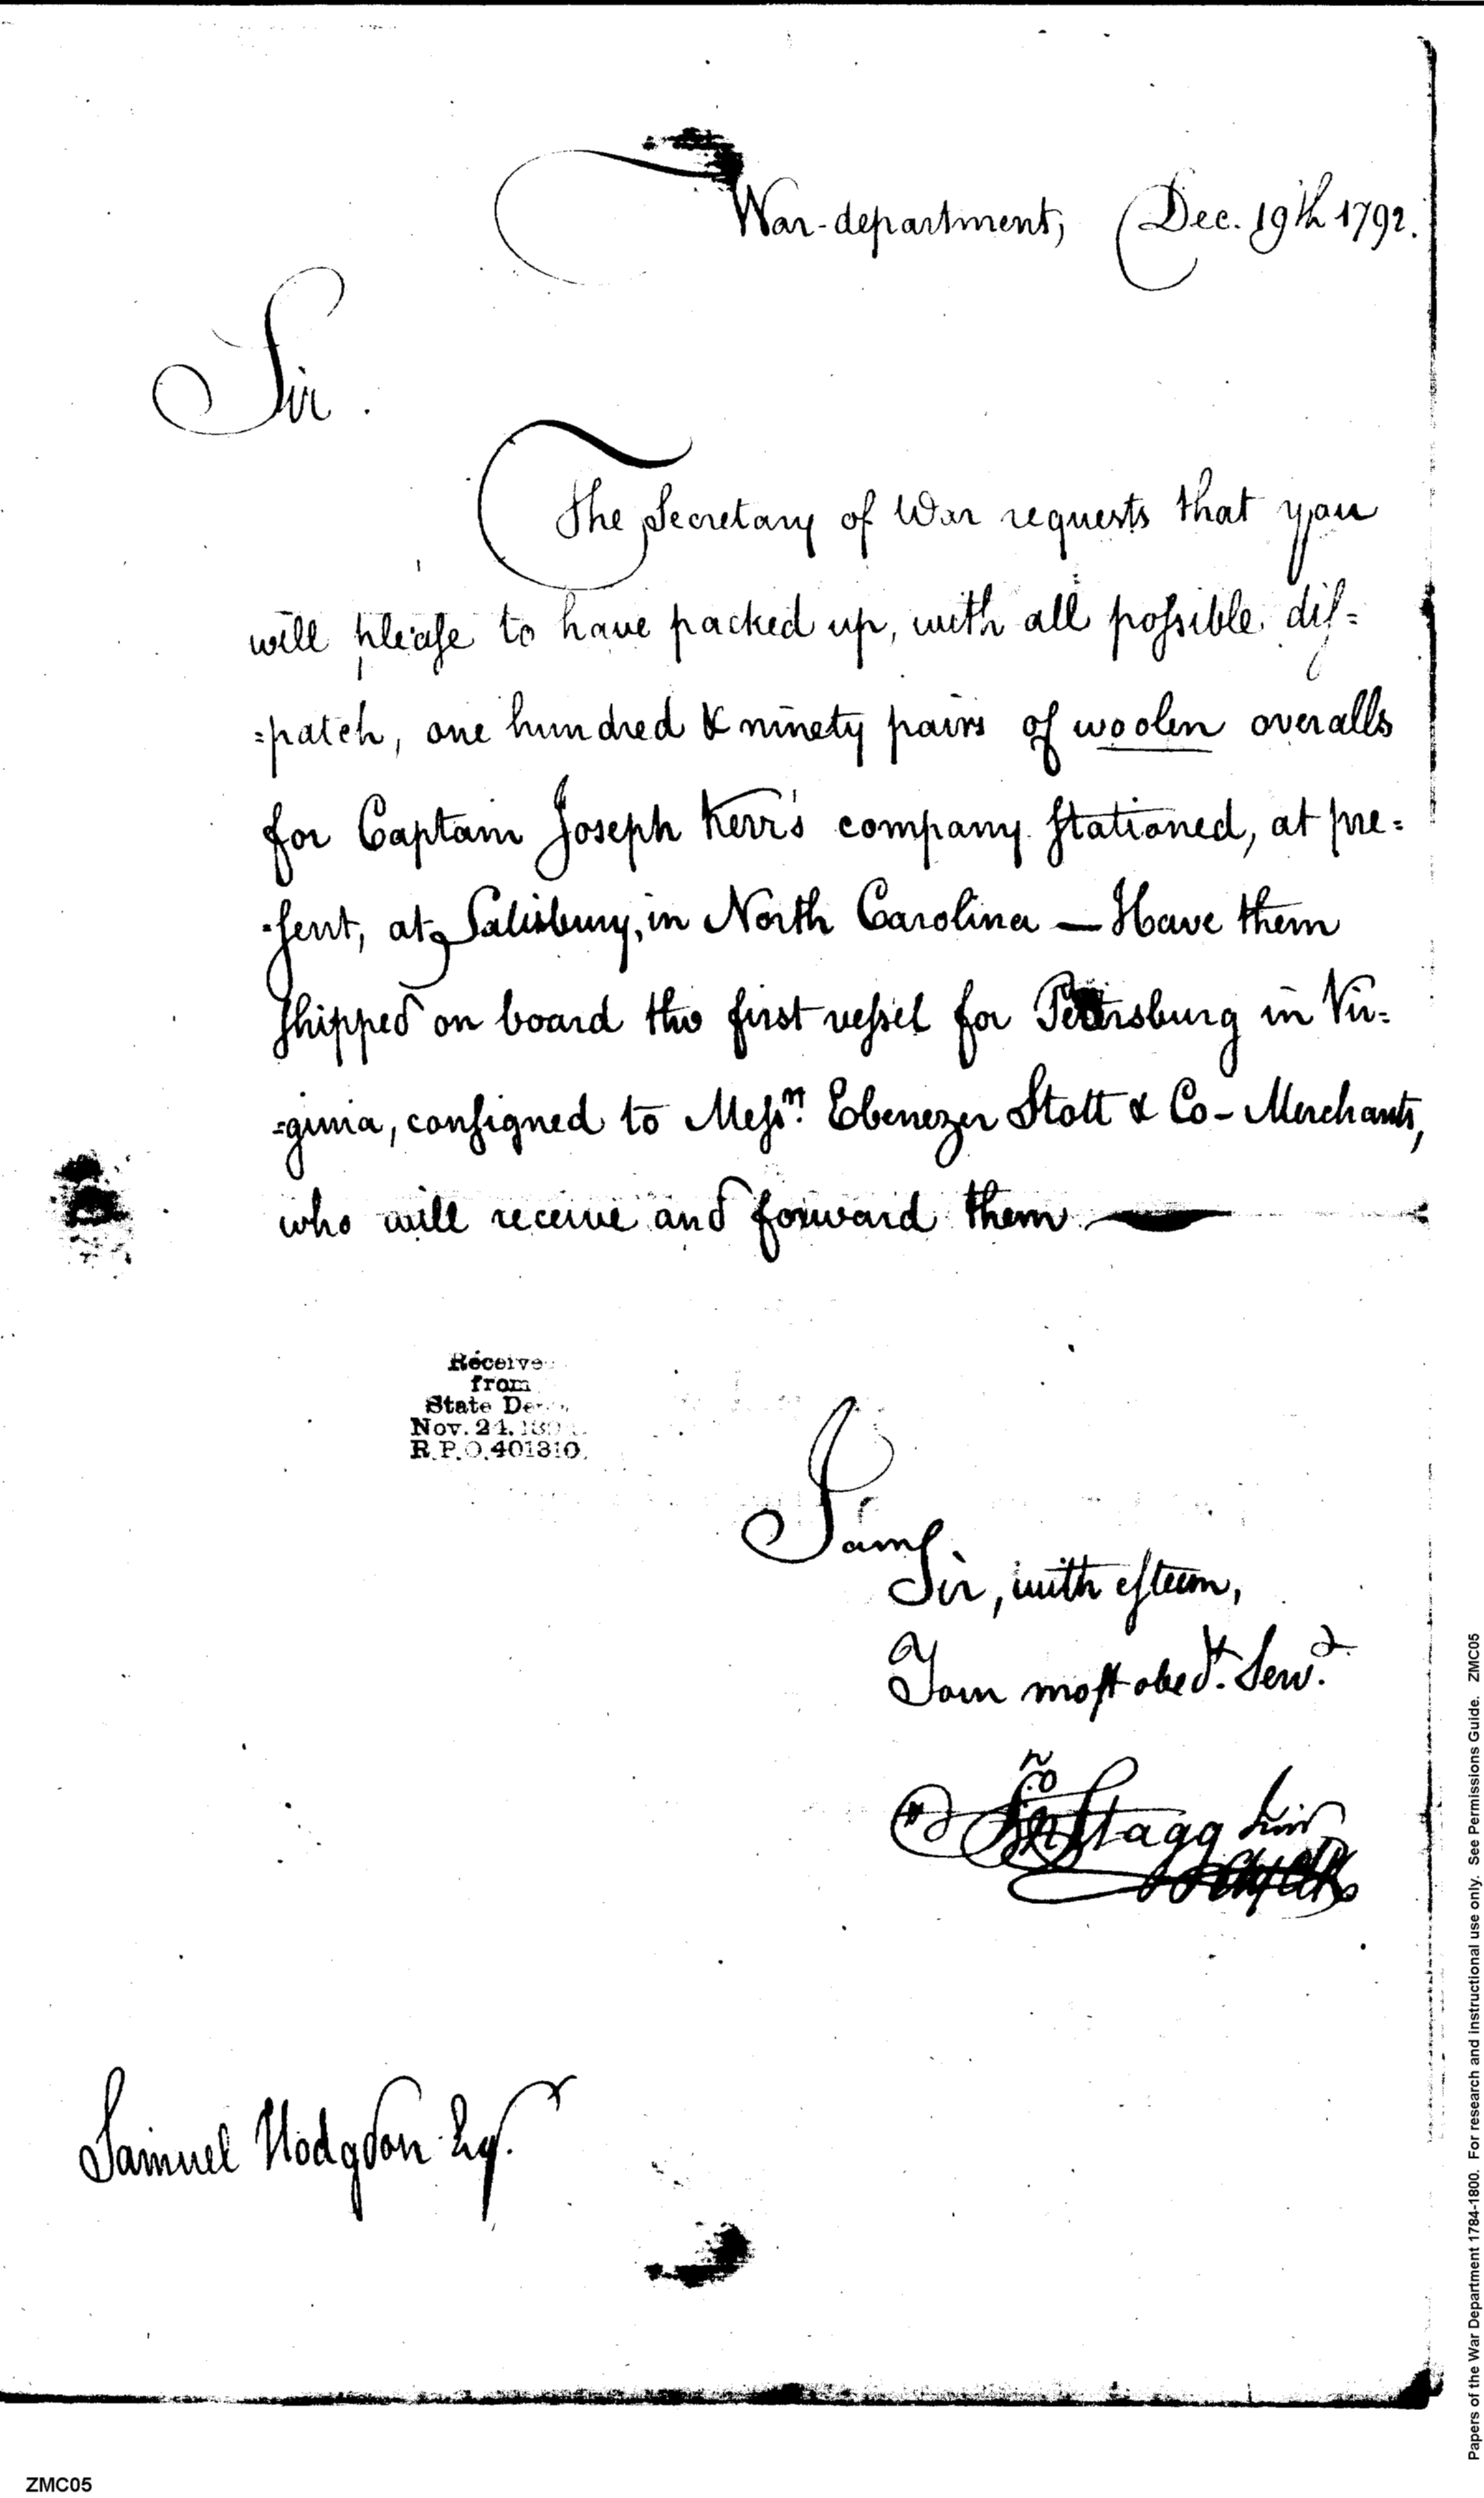 War-department, Dec. 19th 1792.
Sir.
The Secretary of War requests that you
will please to have packed up, with all possible dis=
=patch, one hundred & ninety pairs of woolen overalls
for Captain Joseph Kerr's company stationed, at pre=
=sent, at Salisbury, in North Carolina — Have them
shipped on board the first vessel for Petersburg in Vir=
=ginia, consigned to Messrs. Ebenezer Stott & Co - Merchants,
who will receive and forward them —
Receive
from
State De
Nov. 24. 18
R.P.O. 401310.
I am
Sir, with esteem,
Your most obedt. Servt.
Jno Stagg Junr
Samuel Hodgdon Esqr.
Papers of the War Department 1784-1800. For research and instructional use only. See Permissions Guide. ZMC05
ZMC05